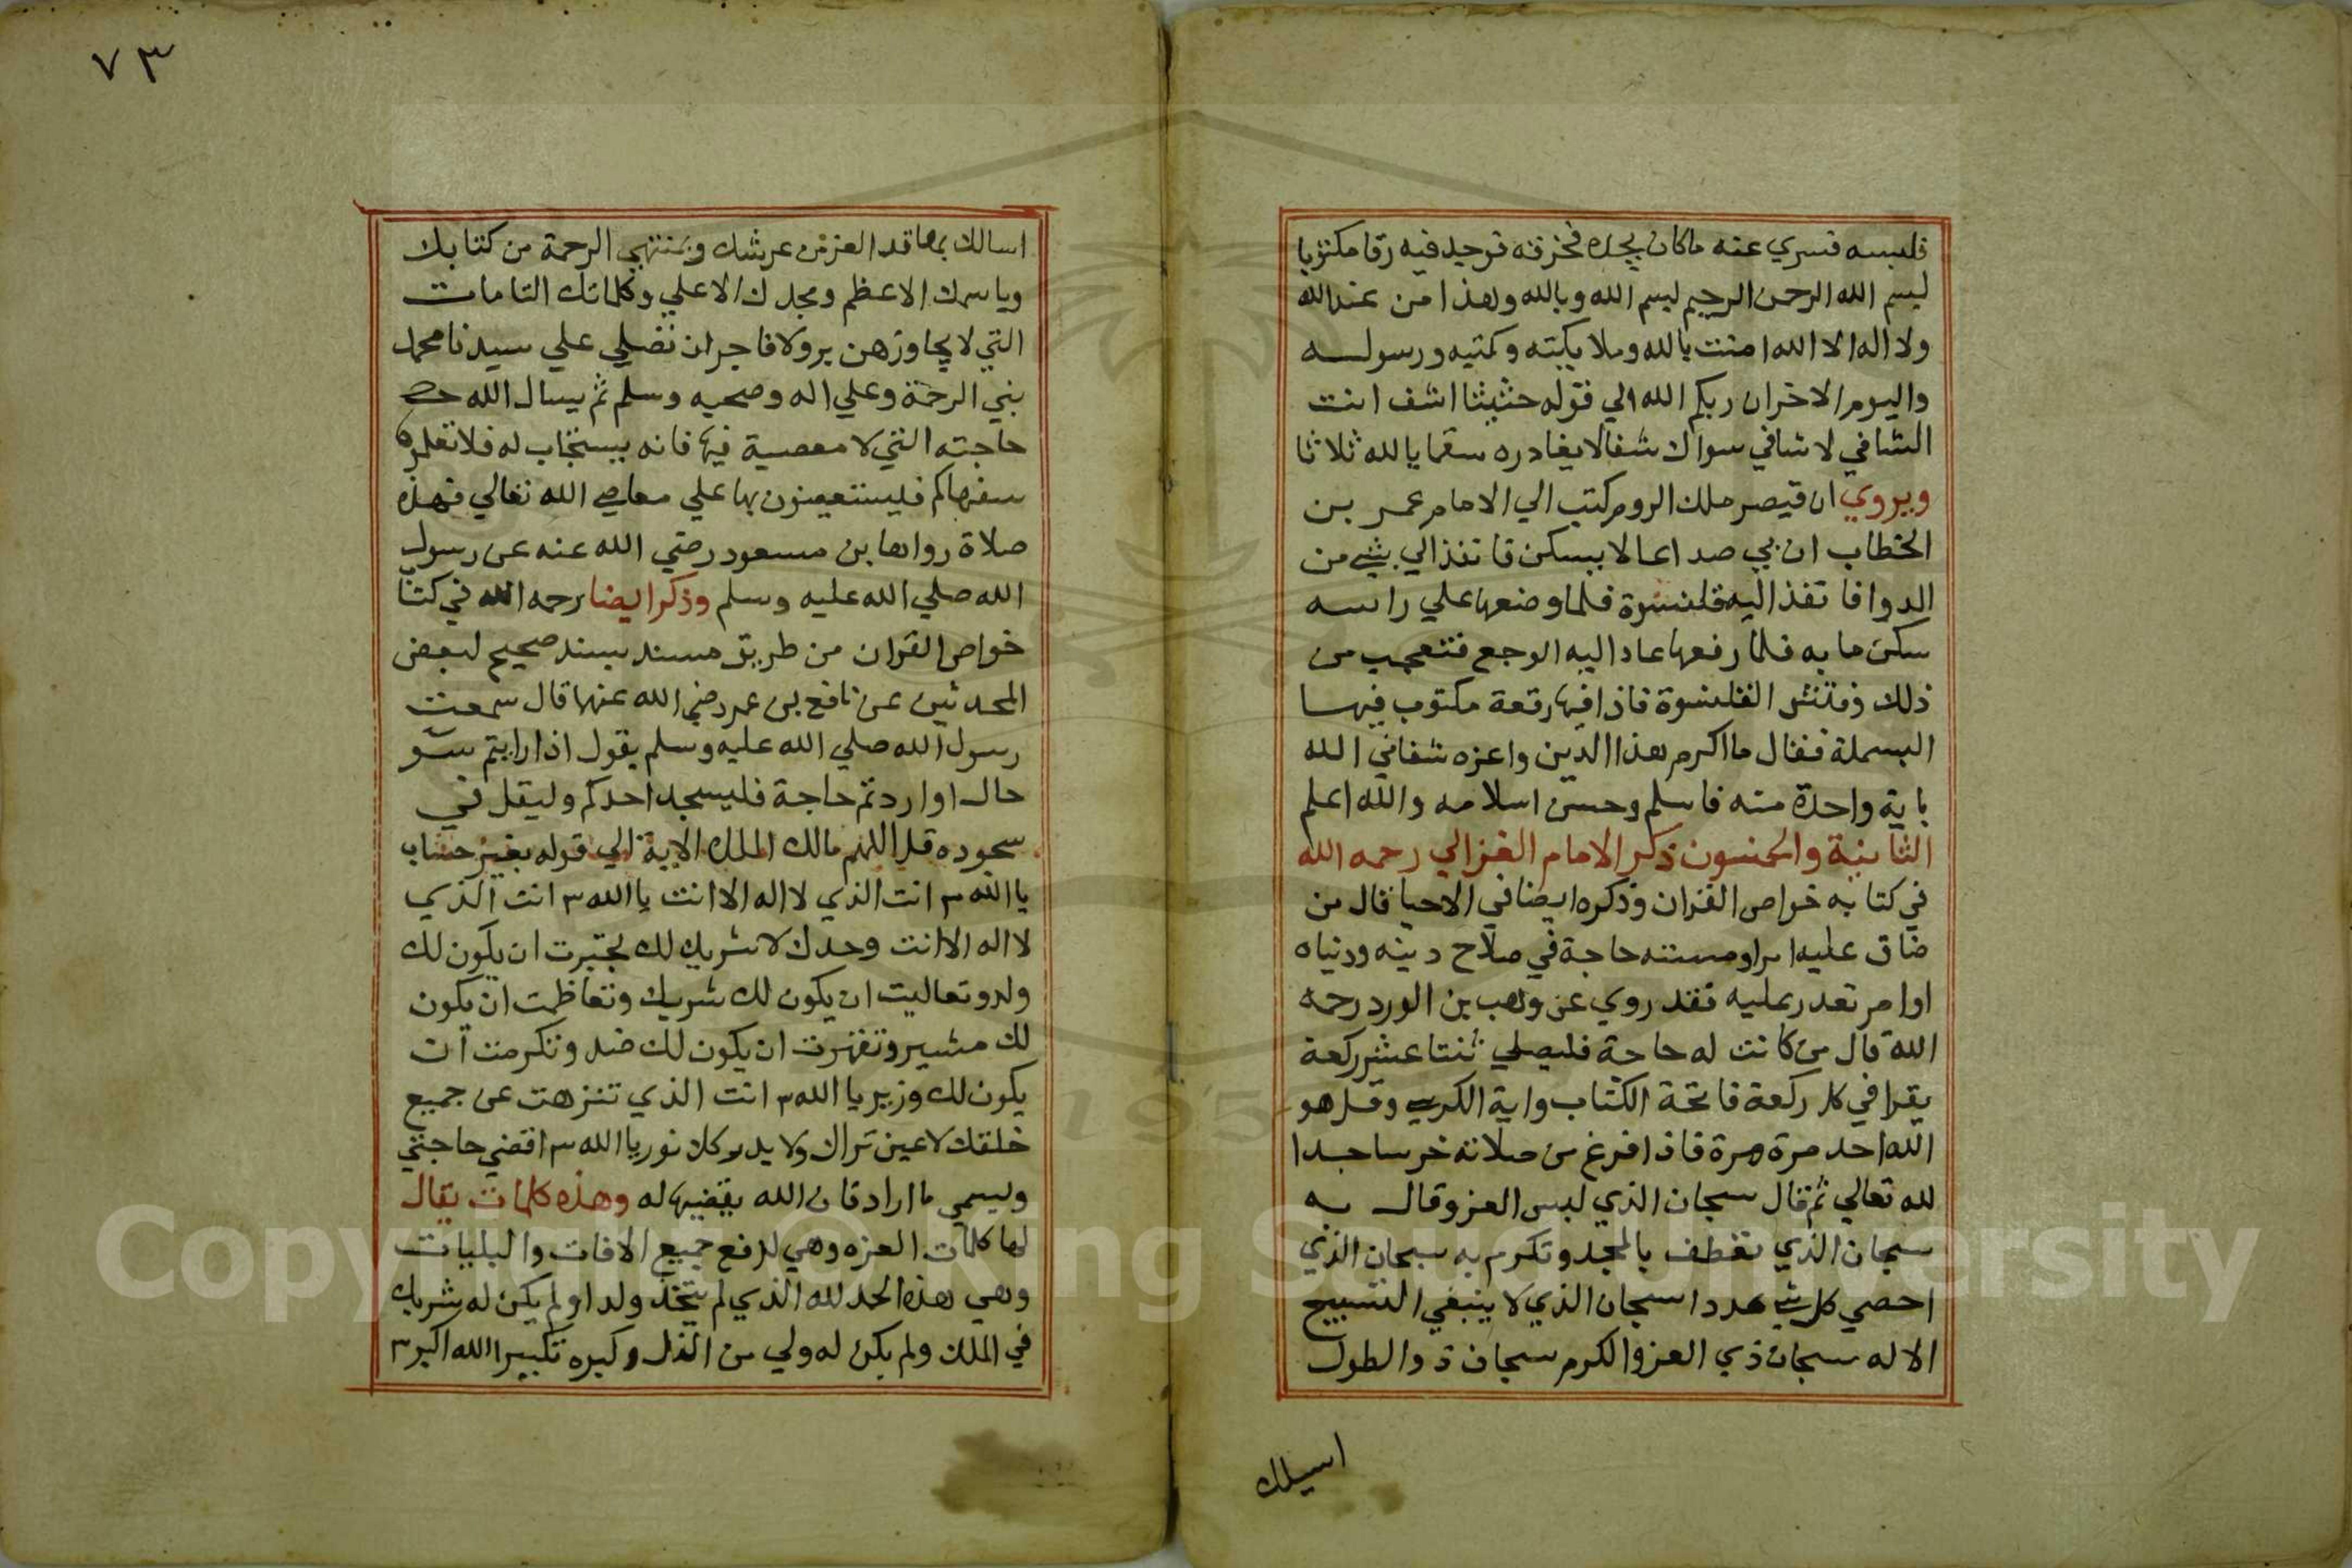 فلبسه فسري عنه ماكان يجده فخرقه فوجد فيه رقا مكتوبا
بسم الله الرحمن الرحيم بسم الله وبالله وهذا من عند الله
ولا اله الا الله امنت بالله وملايكته وكتبه ورسوله
واليوم الاخر ان ربكم الله الي قوله حثيثا اشف انت
الشافي لا شافي سواك شفا لا يغادره سقما يا الله ثلاثا
ويروي ان قيصر ملك الروم كتب الي الامام عمر بن
الخطاب ان بي صداعا لا يسكن فانفذ الي بشي من
الدوا فانفذ اليه قلنسوة فلما وضعها علي راسه
سكن ما به فلما رفعها عاد اليه الوجع فتعجب من
ذلك ففتش القلنسوة فاذا فيها رقعة مكتوب فيها
البسملة فقال ما اكرم هذا الدين واعزه شفاني الله
باية واحدة منه فاسلم وحسن اسلامه والله اعلم
الثانية والخمسون ذكر الامام الغزالي رحمه الله
في كتابه خواص القران وذكره ايضا في الاحيا قال من
ضاق عليه امر او مسته حاجة في صلاح دينه ودنياه
او امر تعدر عليه فقد روي عن وهب بن الورد رحمه
الله قال من كانت له حاجة فليصلي ثنتا عشر ركعة
يقرا في كل ركعة فاتحة الكتاب واية الكرسي وقل هو
الله احد مرة مرة فاذا فرغ من صلاته خر ساجدا
لله تعالي ثم قال سبحان الذي لبس العز وقال به
سبحان الذي تعطف بالمجد وتكرم به سبحان الذي
احصي كل شي عددا سبحان الذي لا ينبغي التسبيح
الا له سبحان ذي العز والكرم سبحان ذو الطول
اسيلك
٧٣
اسالك بمعاقد العز من عرشك وبمنتهي الرحمة من كتابك
وباسمك الاعظم ومجدك الاعلي وكلماتك التامات
التي لا يجاوزهن بر ولا فاجر ان تصلي علي سيدنا محمد
نبي الرحمة وعلي اله وصحبه وسلم ثم يسال الله
حاجته التي لا معصية فيها فانه يستجاب له فلا تعلموه
سفهاكم فليستعينون بها علي معاصي الله تعالي فهذه
صلاة رواها بن مسعود رضي الله عنه عن رسول
الله صلي الله عليه وسلم وذكر ايضا رحمه الله في كتا
خواص القران من طريق مسند بسند صحيح لبعض
المحدثين عن نافع بن عمر رضي الله عنها قال سمعت
رسول الله صلي الله عليه وسلم يقول اذا رايتم سو
حال او اردتم حاجة فليسجد احدكم وليقل في
سجوده قل اللهم مالك الملك الاية الي قوله بغير حساب
يا الله ٣ انت الذي لا اله الا انت يا الله ٣ انت الذي
لا اله الا انت وحدك لا شريك لك تجبرت ان يكون لك
ولد وتعاليت ان يكون لك شريك وتعاظمت ان يكون
لك مشير وتقهرت ان يكون لك ضد وتكرمت ان
يكون لك وزير يا الله ٣ انت الذي تنزهت عن جميع
خلقك لا عين تراك ولا يدركك نور يا الله ٣ اقضي حاجتي
ويسمي ما اراد فان الله يقضيها له وهذه كلمات يقال
لها كلمات العزه وهي لدفع جميع الافات والبليات
وهي هذه الحمد لله الذي لم يتخذ ولدا ولم يكن له شريك
في الملك ولم يكن له ولي من الذل وكبره تكبيرا الله اكبر ٣
Copyright © King Saud University
1957